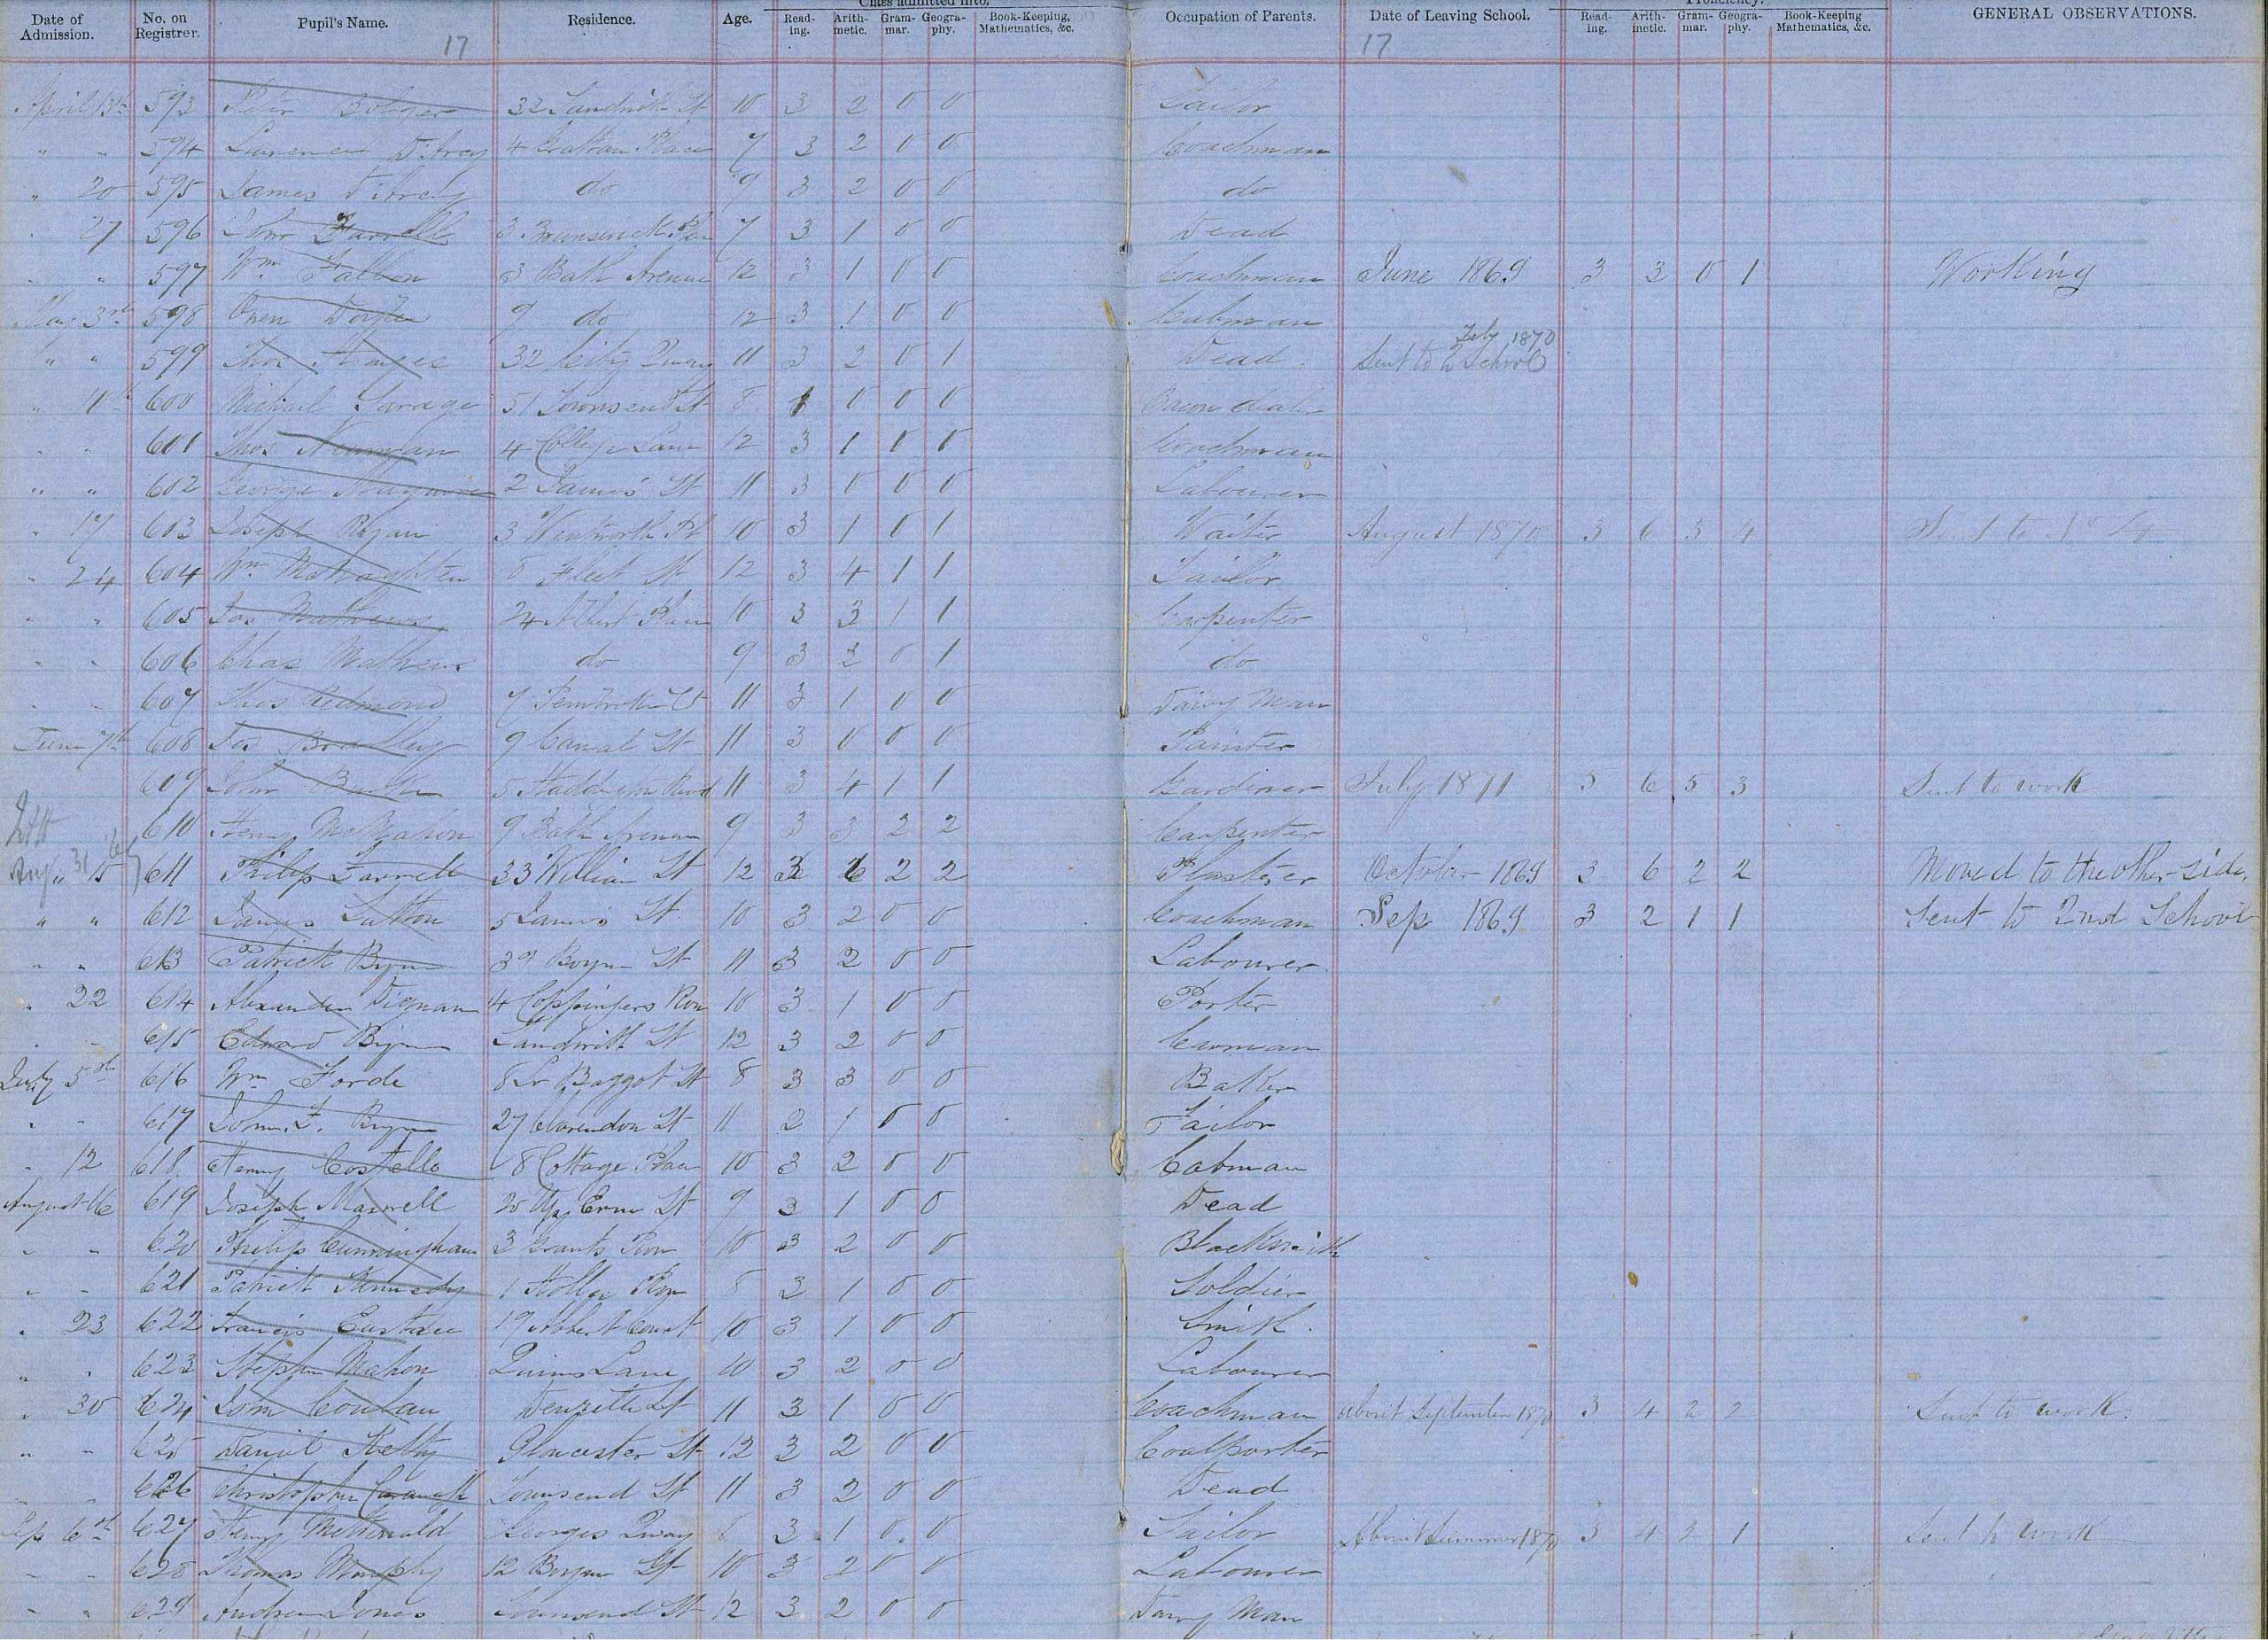 Class admitted into. Proficiency.
Date of Admission. No. on Registrer. Pupil's Name. Residence. Age. Read-ing. Arith-metic. Gram-mar. Geogra-phy. Book-Keeping, Mathematics, &c. Occupation of Parents. Date of Leaving School. Read-ing. Arith-metic. Gram-mar. Geogra-phy. Book-Keeping Mathematics, &c. GENERAL OBSERVATIONS.
17 17
April 13th 593 Peter Bolger 32 Sandwith St 10 3 2 0 0 Tailor
" " 594 Laurence D'Arcy 4 Grattan Place 7 3 2 0 0 Coachman
" 20 595 James do 9 3 2 0 0 do
" 27 596 John Farrell 3 Brunswick Place 7 3 1 0 0 Dead
" " 597 Wm Fallon 3 Bath Avenue 12 3 1 0 0 Coachman June 1869 3 3 0 1 Working
May 3rd 598 Owen Doyle 9 do 12 3 1 0 0 Cabman
" " 599 Thos 32 City Quay 11 3 2 0 1 Dead Sent to School Feby 1870
" 11th 600 Michael Savage 51 Townsend St 8 1 0 0 0 Bacon
" " 601 Thos Newman 4 College Lane 12 3 1 0 0 Coachman
" " 602 George 2 James' St 11 3 0 0 0 Labourer
" 17 603 Joseph Ryan 3 Wentworth Pl 10 3 1 0 1 Waiter August 1870 3 6 3 4 Sent to
" 24 604 Wm McNaghten 8 Fleet St 12 3 4 1 1 Tailor
" " 605 Jas Mathews 24 Albert Place 10 3 3 1 1 Carpenter
" " 606 Chas Mathews do 9 3 2 0 1 do
" " 607 Thos Redmond 7 Pembroke St 11 3 1 0 0 Dairy Man
June 7th 608 Jas Bradley 9 Canal St 11 3 0 0 0 Painter
609 John 5 Haddington Road 11 3 4 1 1 Gardiner July 1871 5 6 5 3 Sent to work
610 Henry McMahon 9 Bath Avenue 9 3 3 2 2 Carpenter
" 15 611 Philip Farrell 33 William St 12 3 6 2 2 Plasterer October 1869 3 6 2 2 Moved to the other side.
" " 612 James Sutton 5 James St 10 3 2 0 0 Coachman Sep 1869 3 2 1 1 Sent to 2nd School
" " 613 Patrick Byrne 39 Boyne St 11 3 2 0 0 Labourer
" 22 614 Alexander Dignam 4 Coppingers Row 10 3 1 0 0 Porter
" " 615 Edward Byrne Sandwith St 12 3 2 0 0 Carman
July 5th 616 Wm Forde 8 Lr Baggot St 8 3 3 0 0 Baker
" " 617 John F. Byrne 27 Clarendon St 11 2 1 0 0 Tailor
" 12 618 Henry Costello 8 Cottage Place 10 3 2 0 0 Cabman
August 16 619 Joseph Maxwell 20 Upr Erne St 9 3 1 0 0 Dead
" " 620 Philip Cunningham 3 Grants Row 10 3 2 0 0 Blacksmith
" " 621 Patrick Kennedy 1 Holles Row 8 2 1 0 0 Soldier
" 23 622 Francis Eustace 19 Albert Court 10 3 1 0 0 Smith
" " 623 Stephen Mahon Quinns Lane 10 3 2 0 0 Labourer
" 30 624 John Conlan Denzille St 11 3 1 0 0 Coachman about September 1870 3 4 2 2 Sent to work.
" " 625 Daniel Kelly Gloucester St 12 3 2 0 0 Coalporter
" " 626 Christopher Cavanagh Townsend St 11 3 2 0 0 Dead
Sep 6th 627 Henry McDonald Georges Quay 3 1 0 0 Tailor About Summer 1870 3 4 2 1 Sent to work
" " 628 Thomas Murphy 12 Boyne St 10 3 2 0 0 Labourer
" " 629 Andrew Jones Townsend St 12 3 2 0 0 Dairy Man